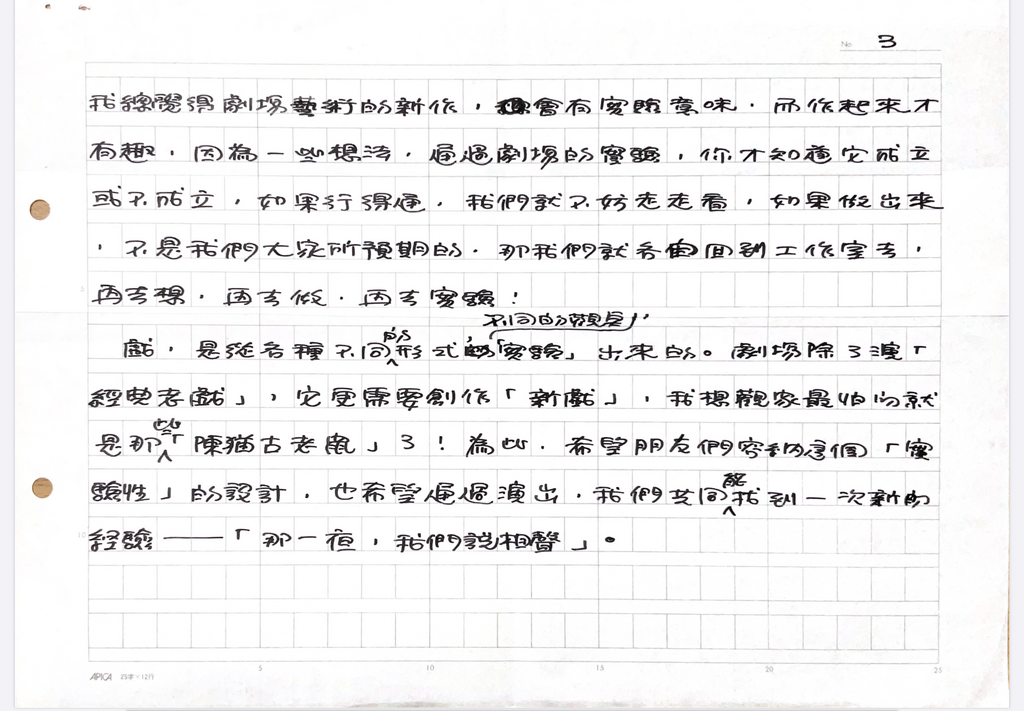 No 3
我總覺得劇場藝術的新作，總會有實驗意味．而作起來才
有趣．因為一些想法．通過劇場的實驗，你才知道它成立
或不成立，如果行得通．我們就不妨走走看，如果做出來
，不是我們大家所預期的．那我們就各自回到工作室去，
再去想．再去做．再去實驗！
不同的觀點"
戲，是從各種不同的形式，「實驗」出來的。劇場除了演「
經典老戲」，它更需要創作「新戲」，我想觀眾最怕的就
是那些「陳猫古老鼠」了！為此．希望朋友們容納這個「實
驗性」的設計．也希望通過演出．我們共同能找到一次新的
經驗——「那一夜，我們說相聲」。
5 10 15 20 25
10
APICA 25字×12行